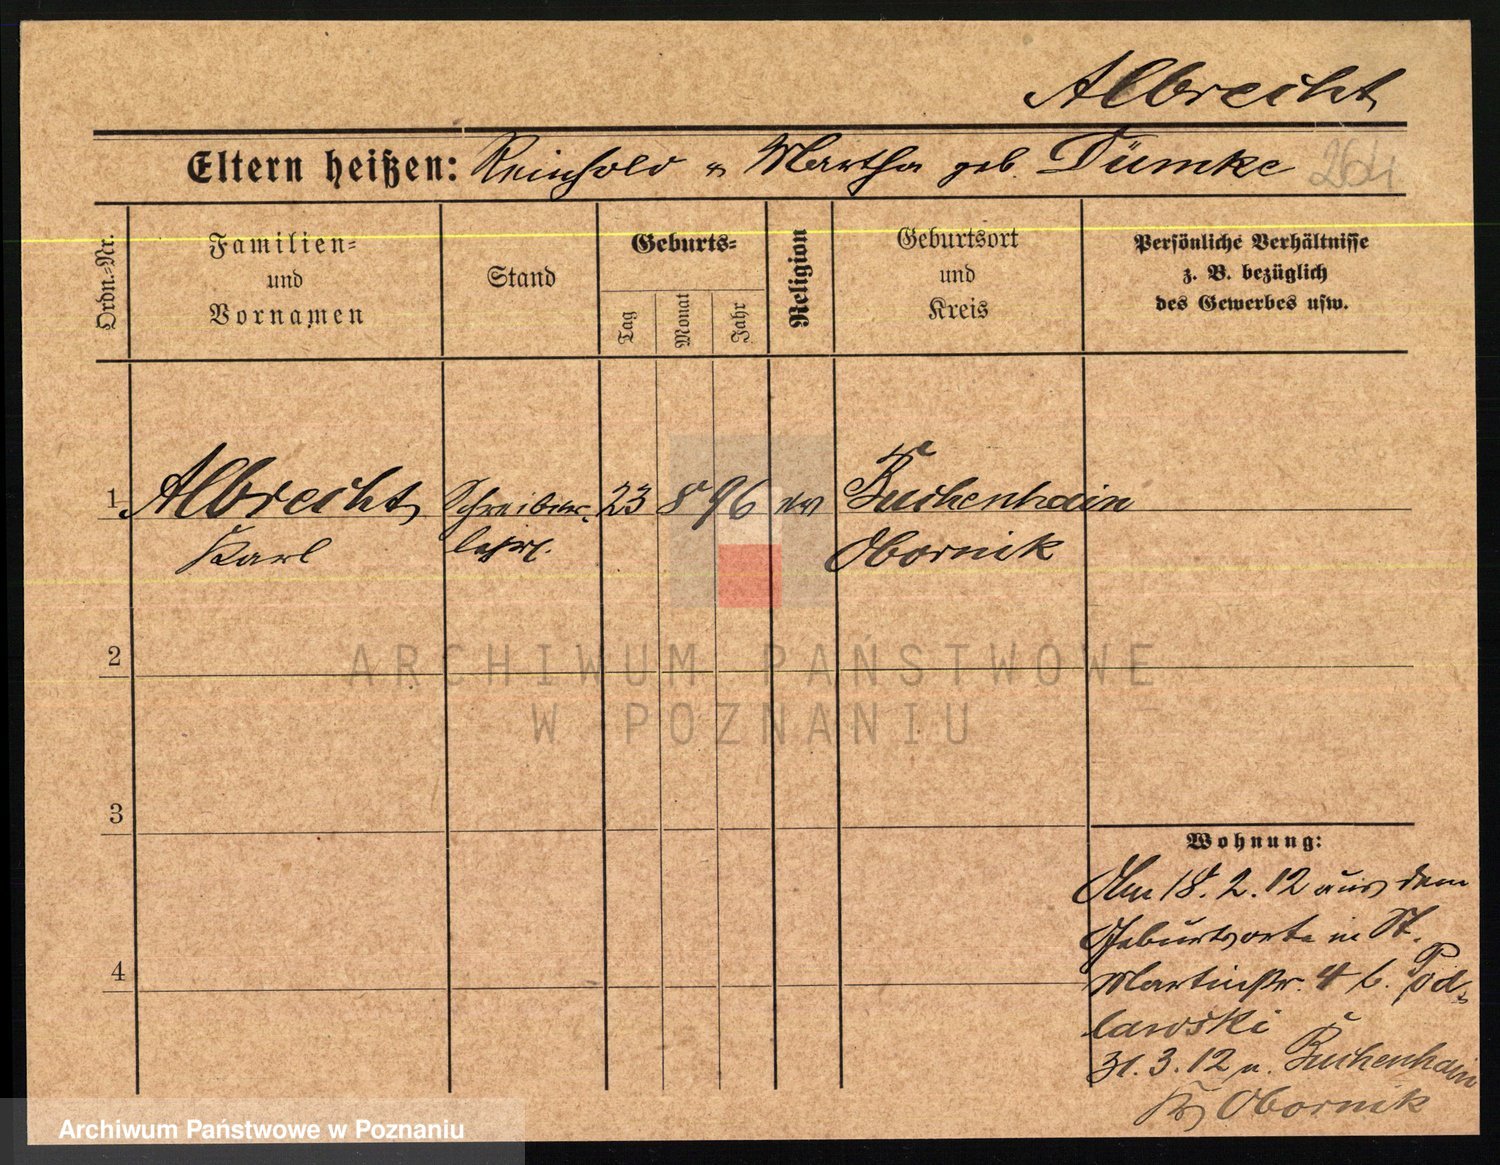 Albrecht
Eltern heißen: Reinhold u Martha geb. Dümke 264
Ordn.=Nr.
Familien=
und
Vornamen
Stand
Geburts=
Tag
Monat
Jahr
Religion
Geburtsort
und
Kreis
Persönliche Verhältnisse
z. B. bezüglich
des Gewerbes usw.
1 Albrecht Schreiber= 23 8 96 ev Buchenhain
Karl lehrl. Obornik
2
3
4
Wohnung:
Am 18. 2. 12 aus dem
Geburtsorte in St.
Martinstr. 4 b. Pod=
lawski
31. 3. 12 n. Buchenhain
Kr Obornik
ARCHIWUM PAŃSTWOWE
W POZNANIU
Archiwum Państwowe w Poznaniu